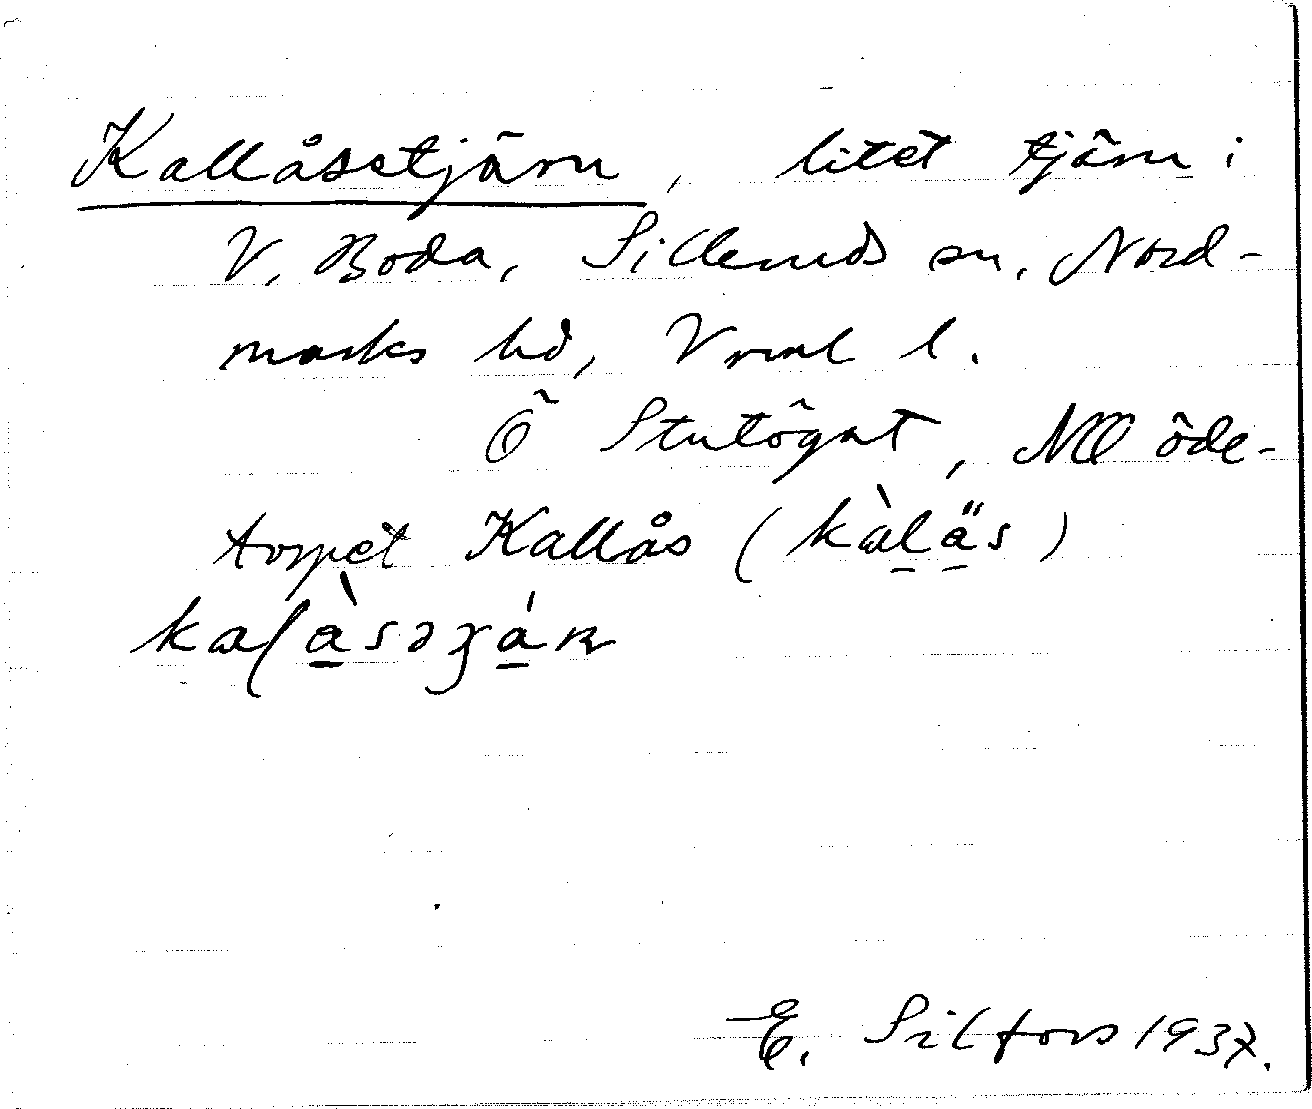 Kallåsetjärn, litet tjärn i
V. Boda, Silleruds sn, Nord-
marks hd, Vrml l.
Ö Stutögat, NO öde-
torpet Kallås (kàlä̱s)
kalà̱səʒá̱ɴ
E. Silfors 1937.